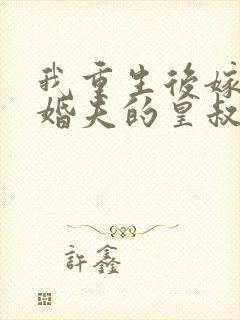 我重生後嫁
婚夫的皇叔
許鑫